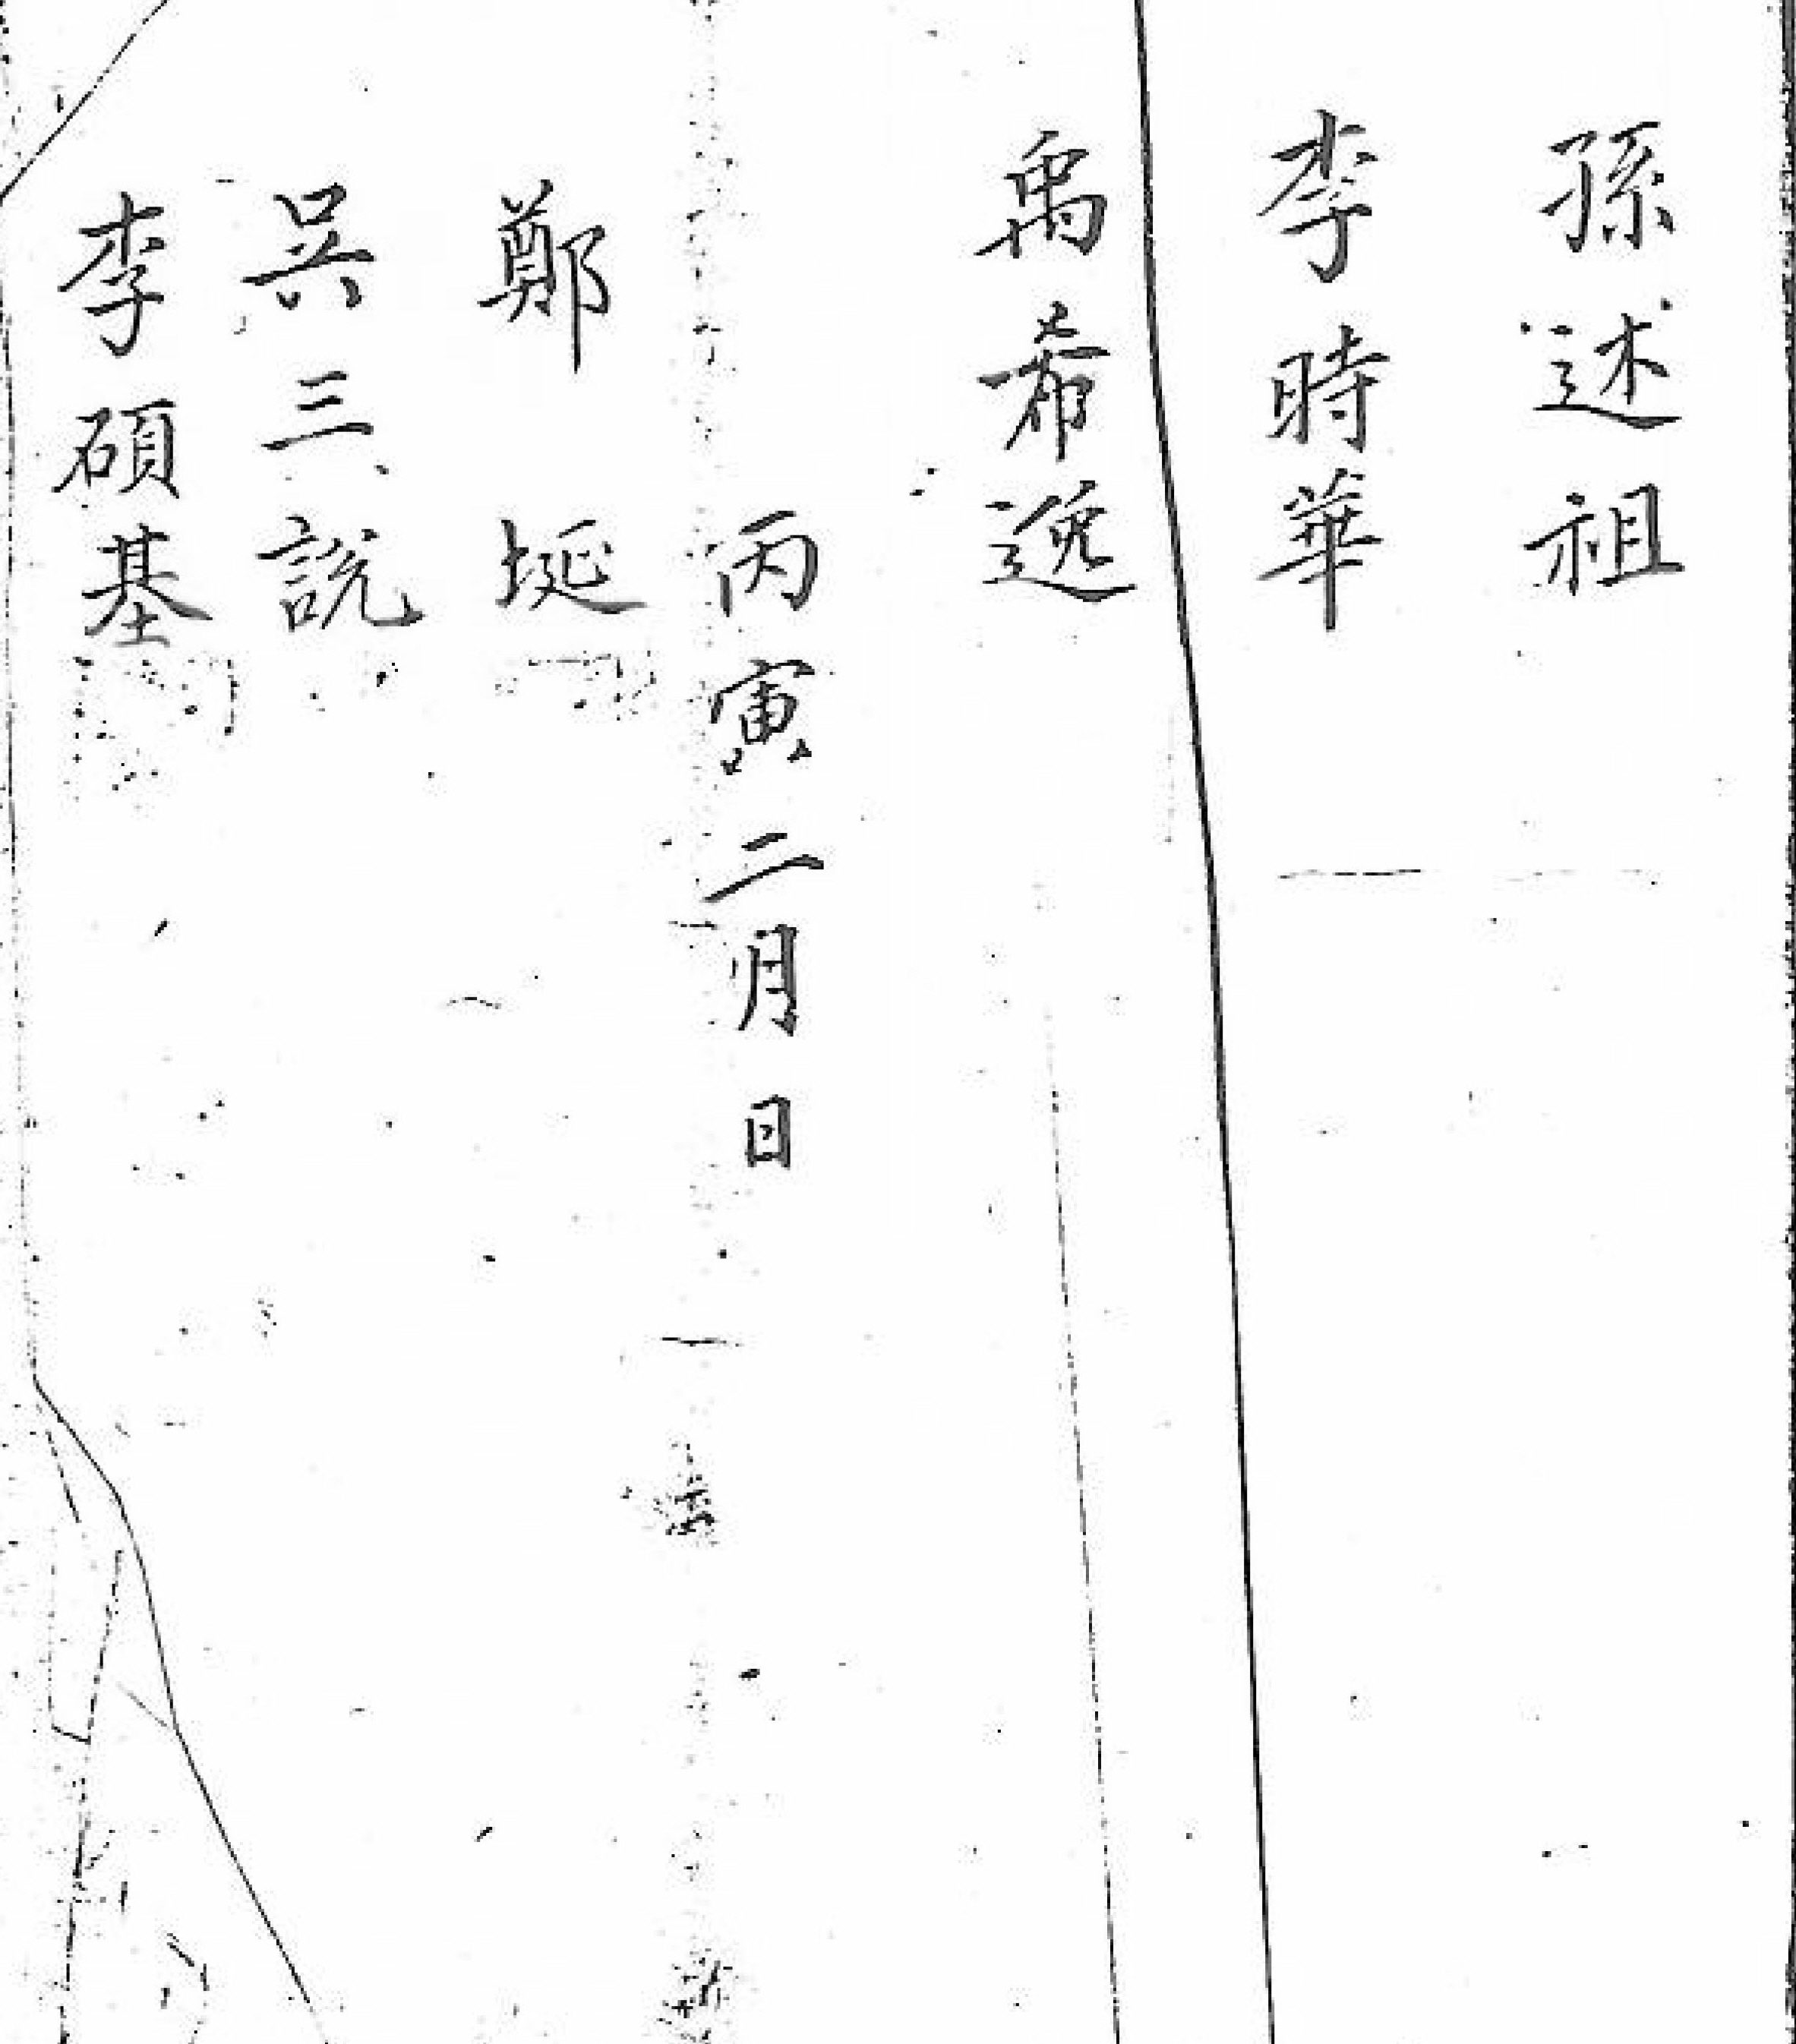 孫述祖
李時華
禹希逸
丙寅二月日
鄭埏
吳三說
李碩基